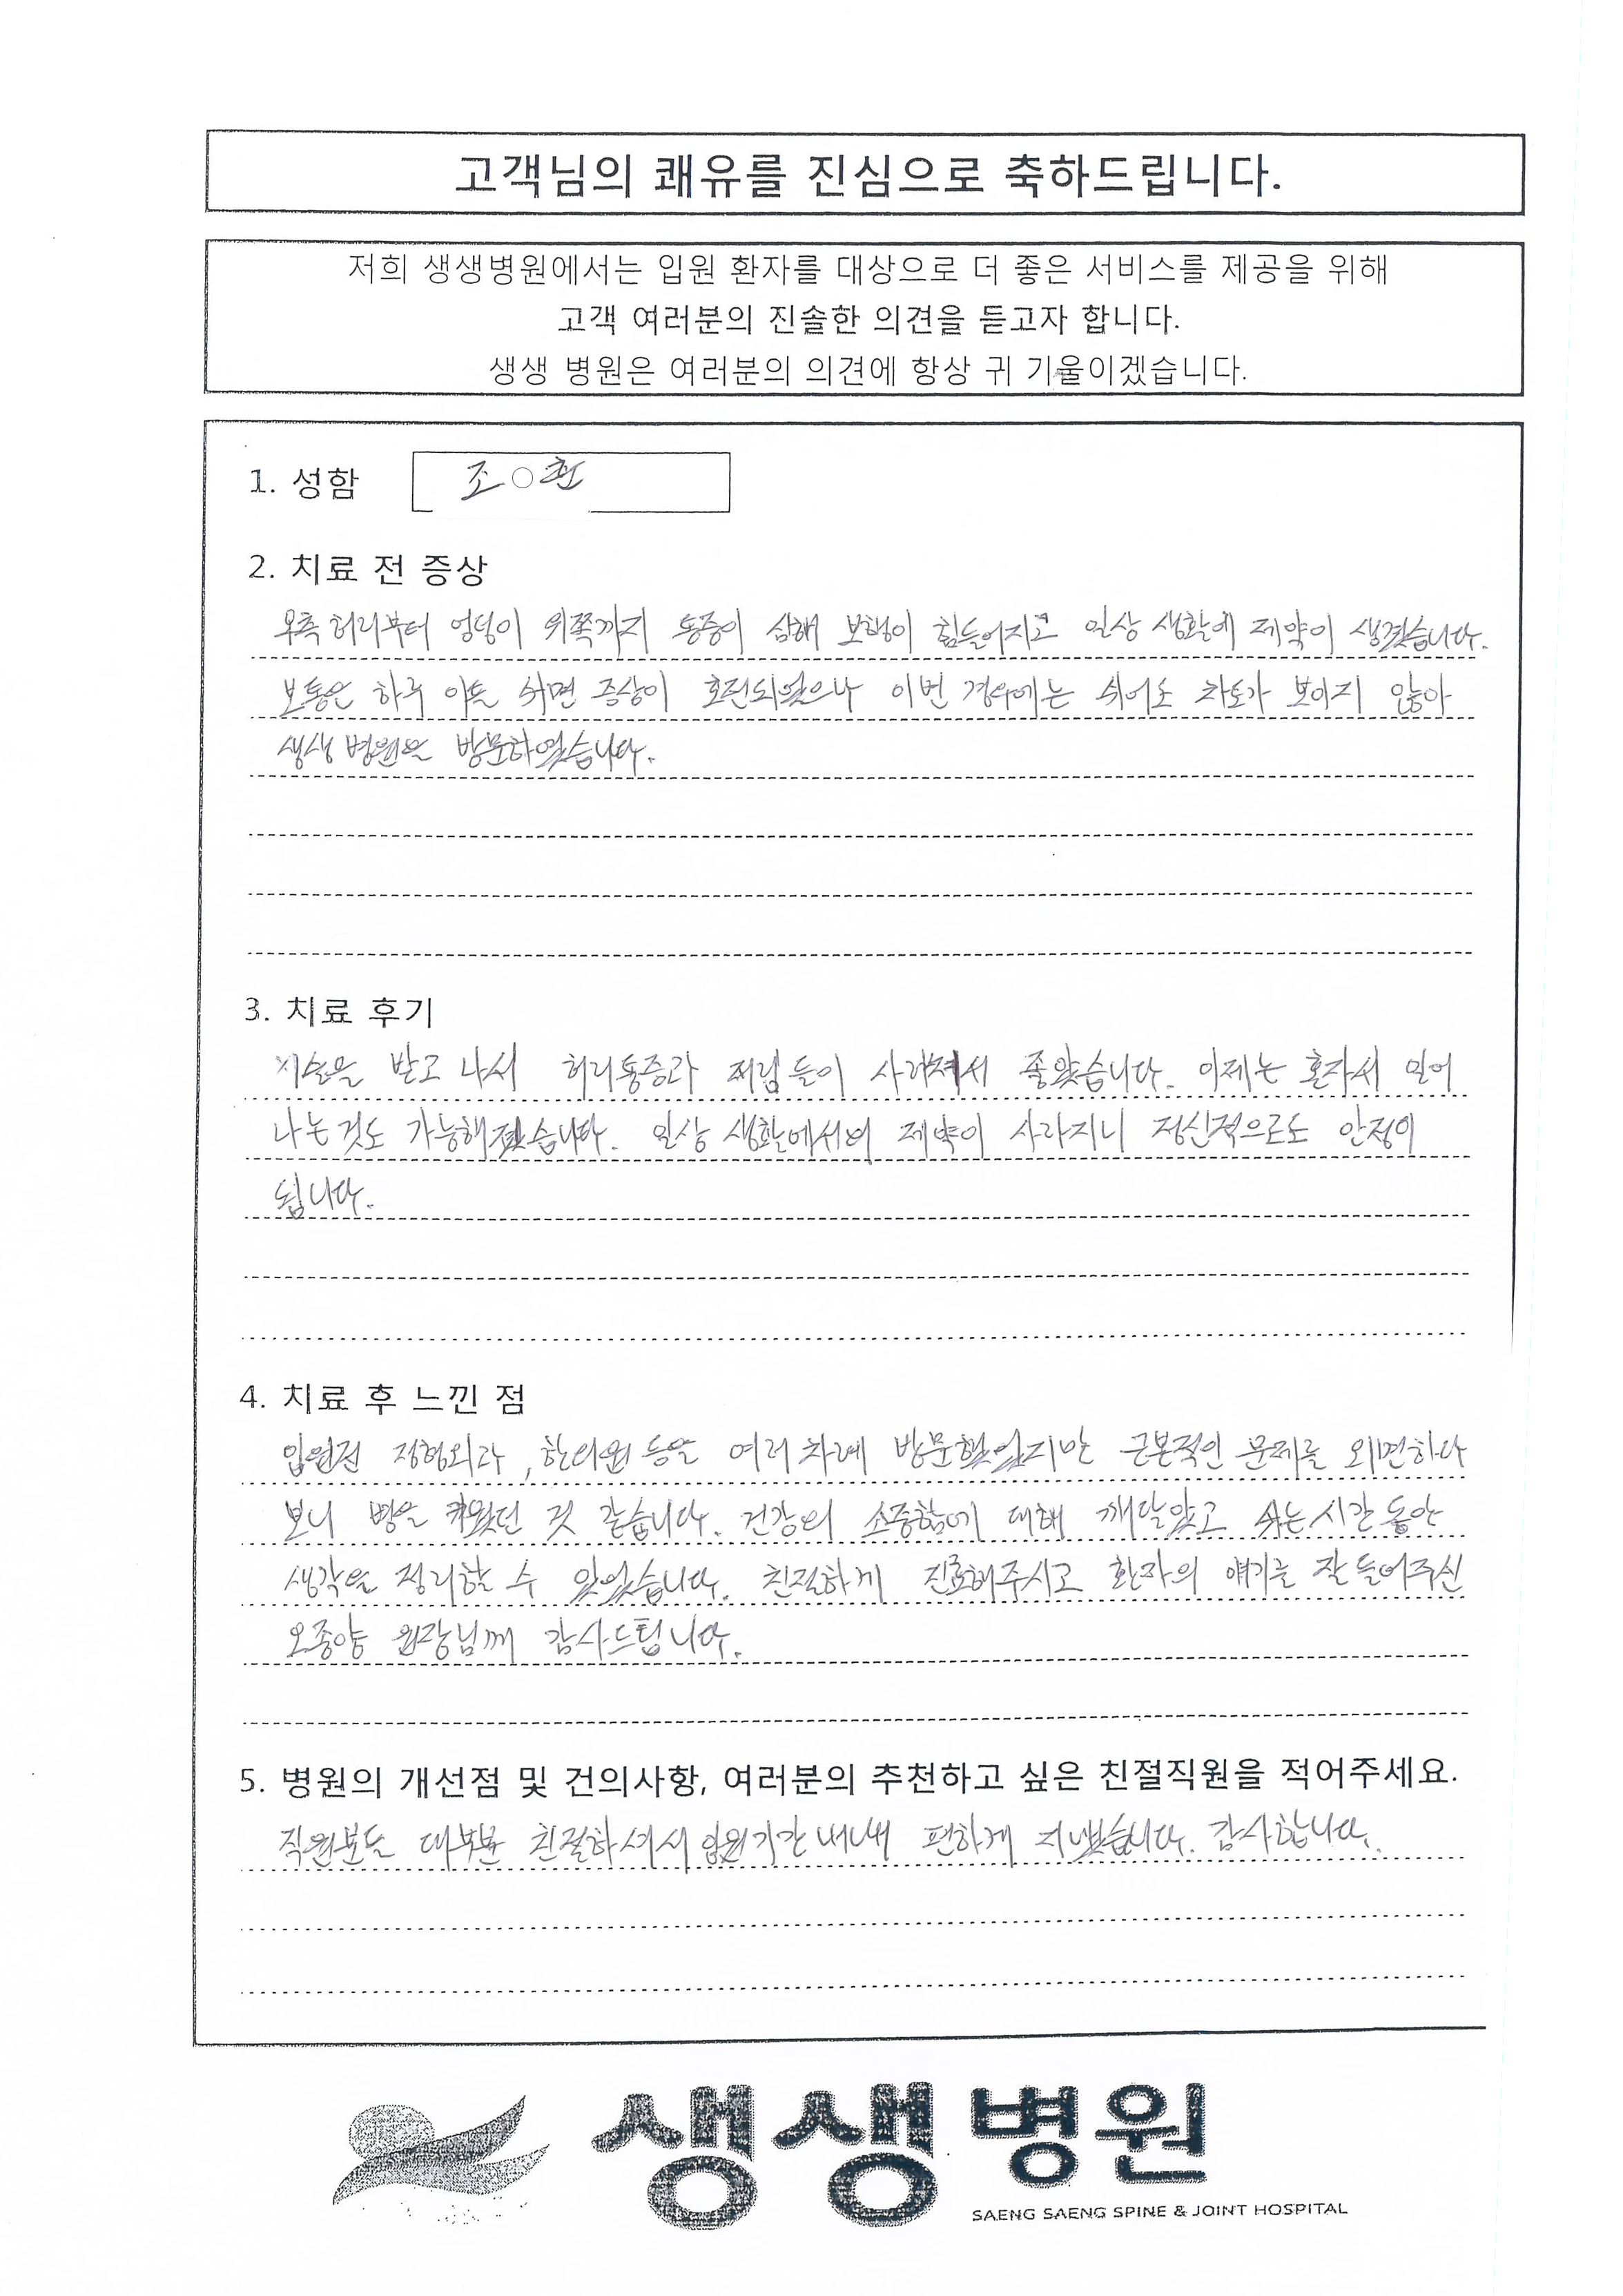 고객님의 쾌유를 진심으로 축하드립니다.
저희 생생병원에서는 입원 환자를 대상으로 더 좋은 서비스를 제공을 위해
고객 여러분의 진솔한 의견을 듣고자 합니다.
생생 병원은 여러분의 의견에 항상 귀 기울이겠습니다.
1. 성함 조○환
2. 치료 전 증상
우측 허리부터 엉덩이 위쪽까지 통증이 심해 보행이 힘들어지고 일상 생활에 제약이 생겼습니다.
보통은 하루 이틀 쉬면 증상이 호전되었으나 이번 경우에는 쉬어도 차도가 보이지 않아
생생병원을 방문하였습니다.
3. 치료 후기
시술을 받고 나서 허리통증과 저림 들이 사라져서 좋았습니다. 이제는 혼자서 일어
나는것도 가능해졌습니다. 일상 생활에서의 제약이 사라지니 정신적으로도 안정이
됩니다.
4. 치료 후 느낀 점
입원전 정형외과, 한의원 등을 여러차례 방문했었지만 근본적인 문제를 외면하다
보니 병을 키웠던 것 같습니다. 건강의 소중함에 대해 깨달았고 쉬는 시간 동안
생각을 정리할 수 있었습니다. 친절하게 진료해주시고 환자의 얘기를 잘 들어주신
오종양 원장님께 감사드립니다.
5. 병원의 개선점 및 건의사항, 여러분의 추천하고 싶은 친절직원을 적어주세요.
직원분들 대부분 친절하셔서 입원기간 내내 편하게 지냈습니다. 감사합니다.
생생병원
SAENG SAENG SPINE & JOINT HOSPITAL